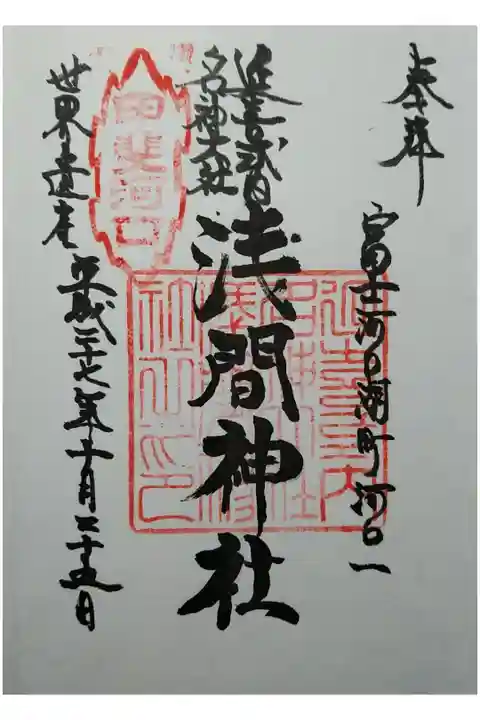 奉拝
富士河口湖町河口一
延喜式内
名神大社
浅間神社
甲斐河口
世界遺産
平成二十七年十一月二十五日